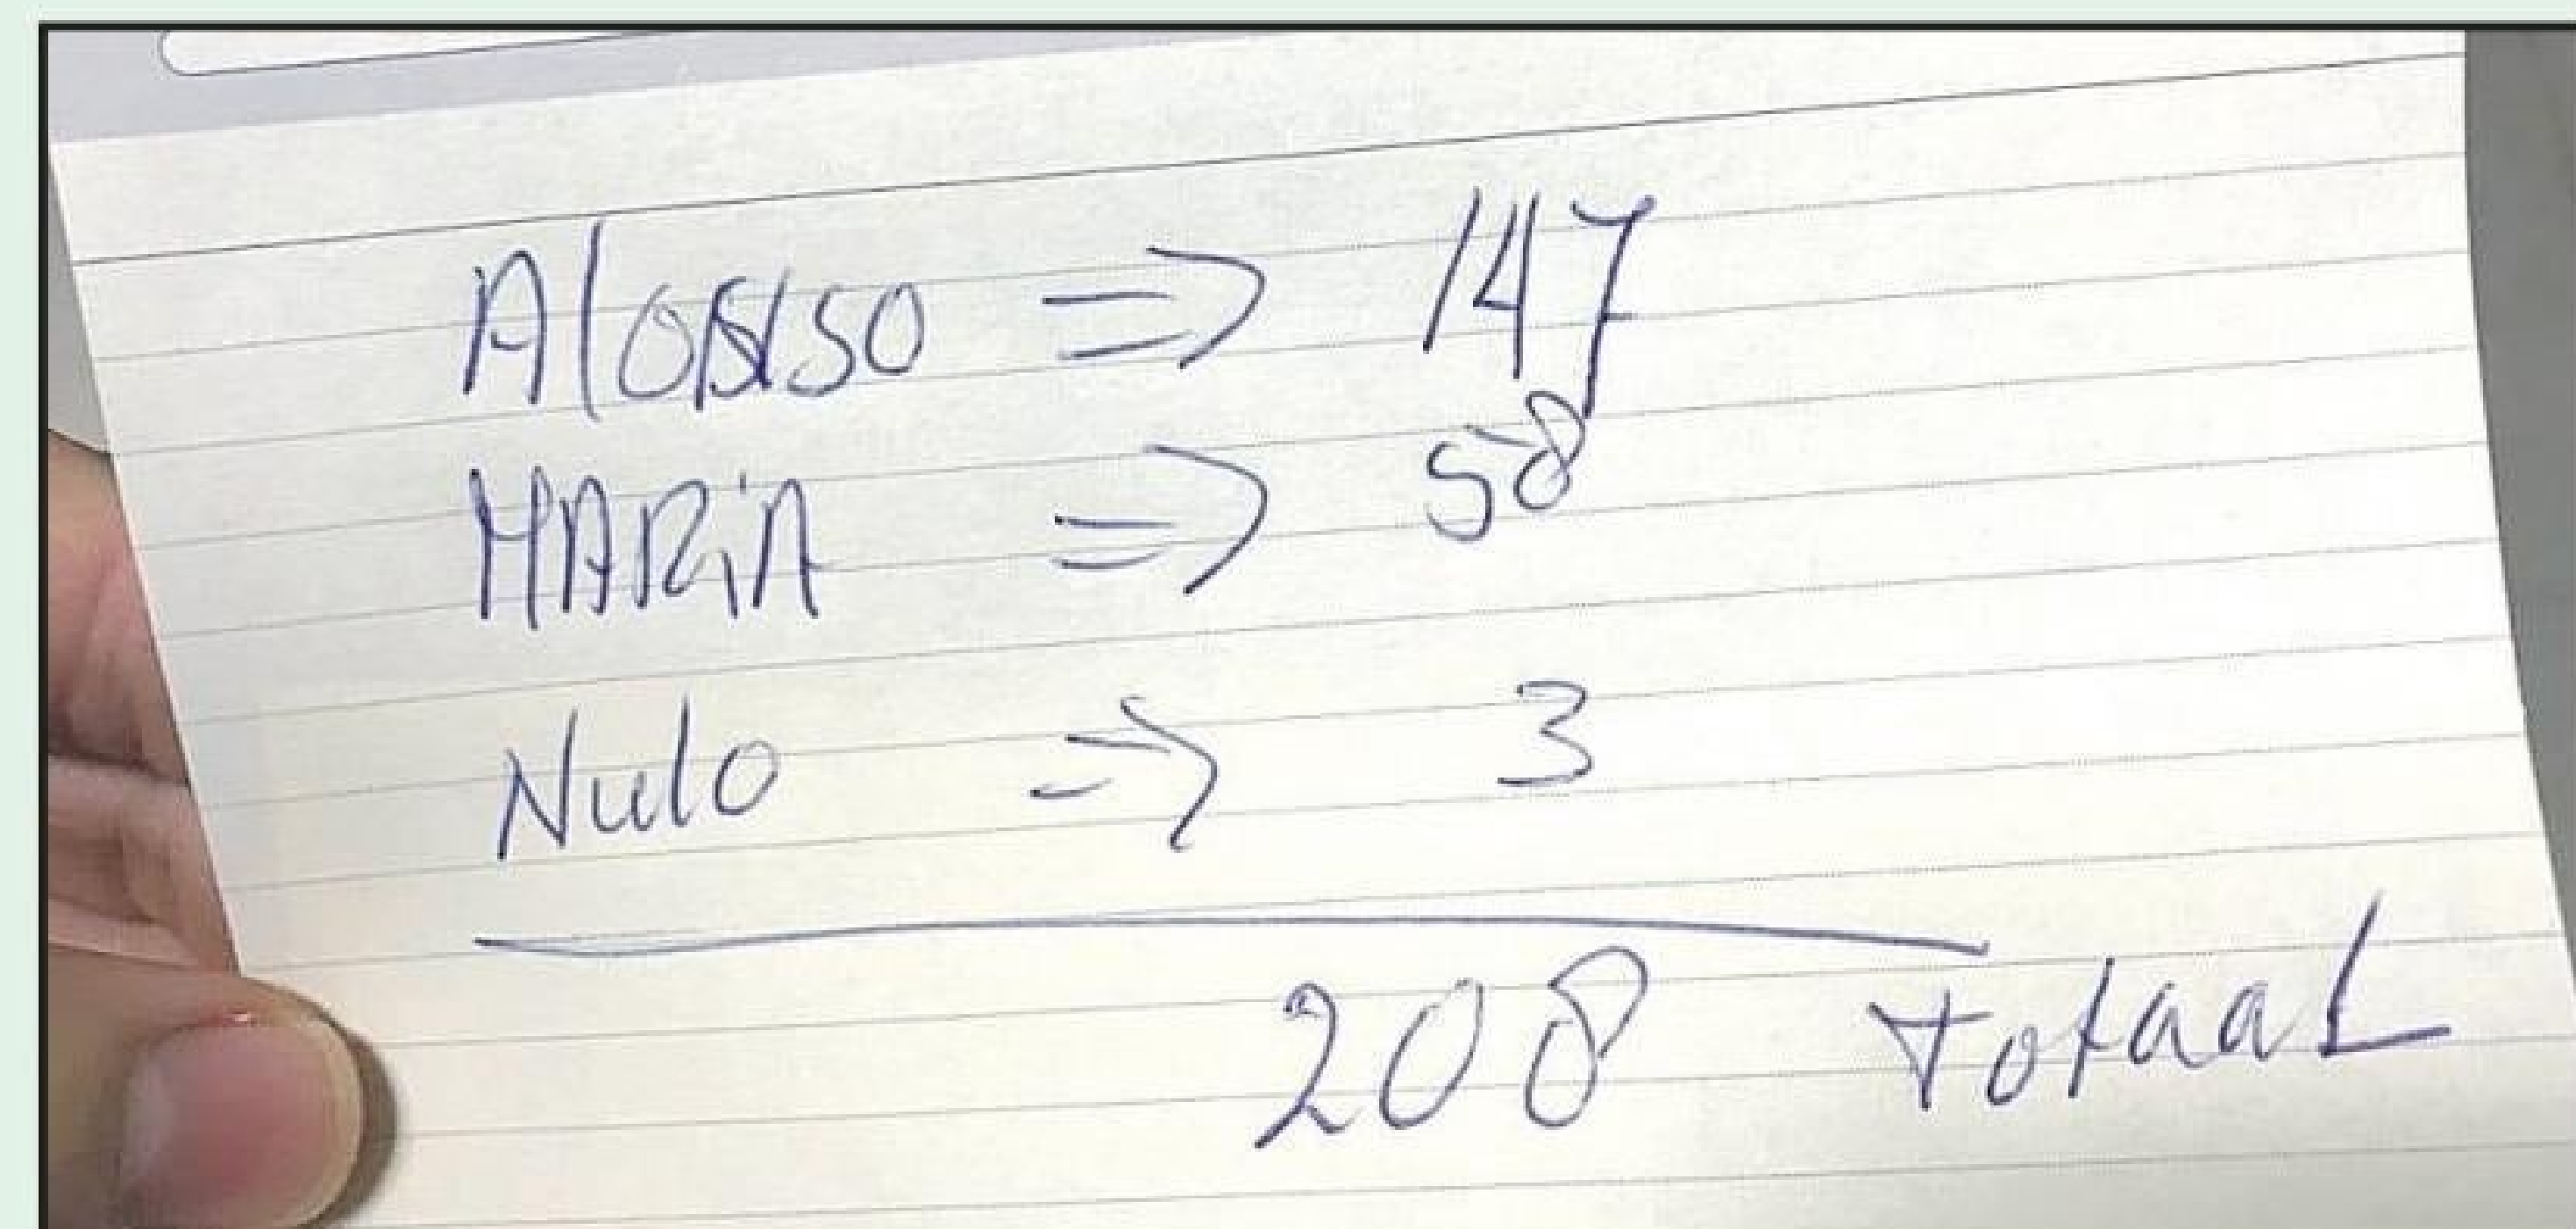 Alonso => 147
MARiA => 58
Nulo => 3
208 Totaal